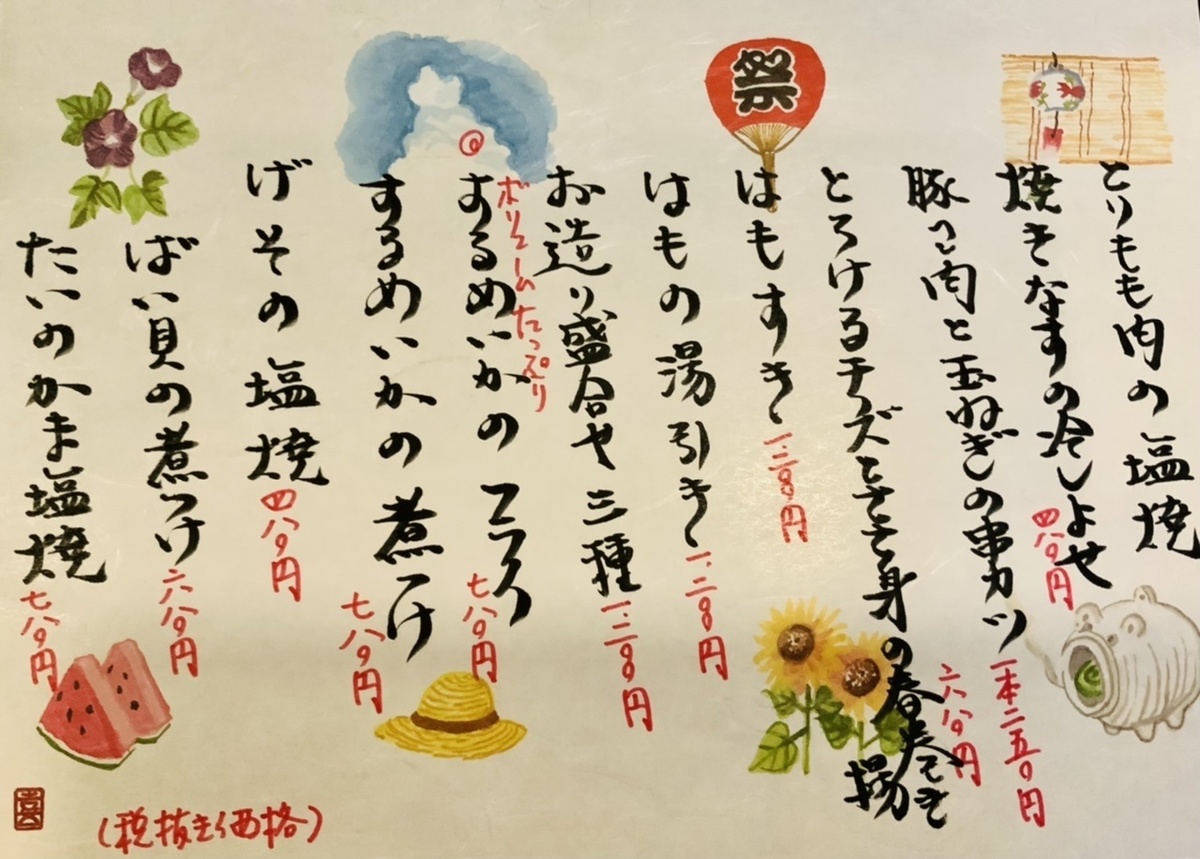 祭
とりもも肉の塩焼
焼きなすの冷しよせ 四八〇円
肉と玉ねぎの串カツ 一本二五〇円
とろけるチーズとささ身の春巻 揚 六八〇円
はもすき 一.二〇〇円
はもの湯引き 一.二〇〇円
お造り盛合せ 三種 一.二〇〇円
ボリュームたっぷり
するめいかの 七八〇円
するめいかの 煮つけ 七八〇円
げその塩焼 四八〇円
ばい貝の煮つけ 六八〇円
たいのかま塩焼 七八〇円
(税抜き価格)